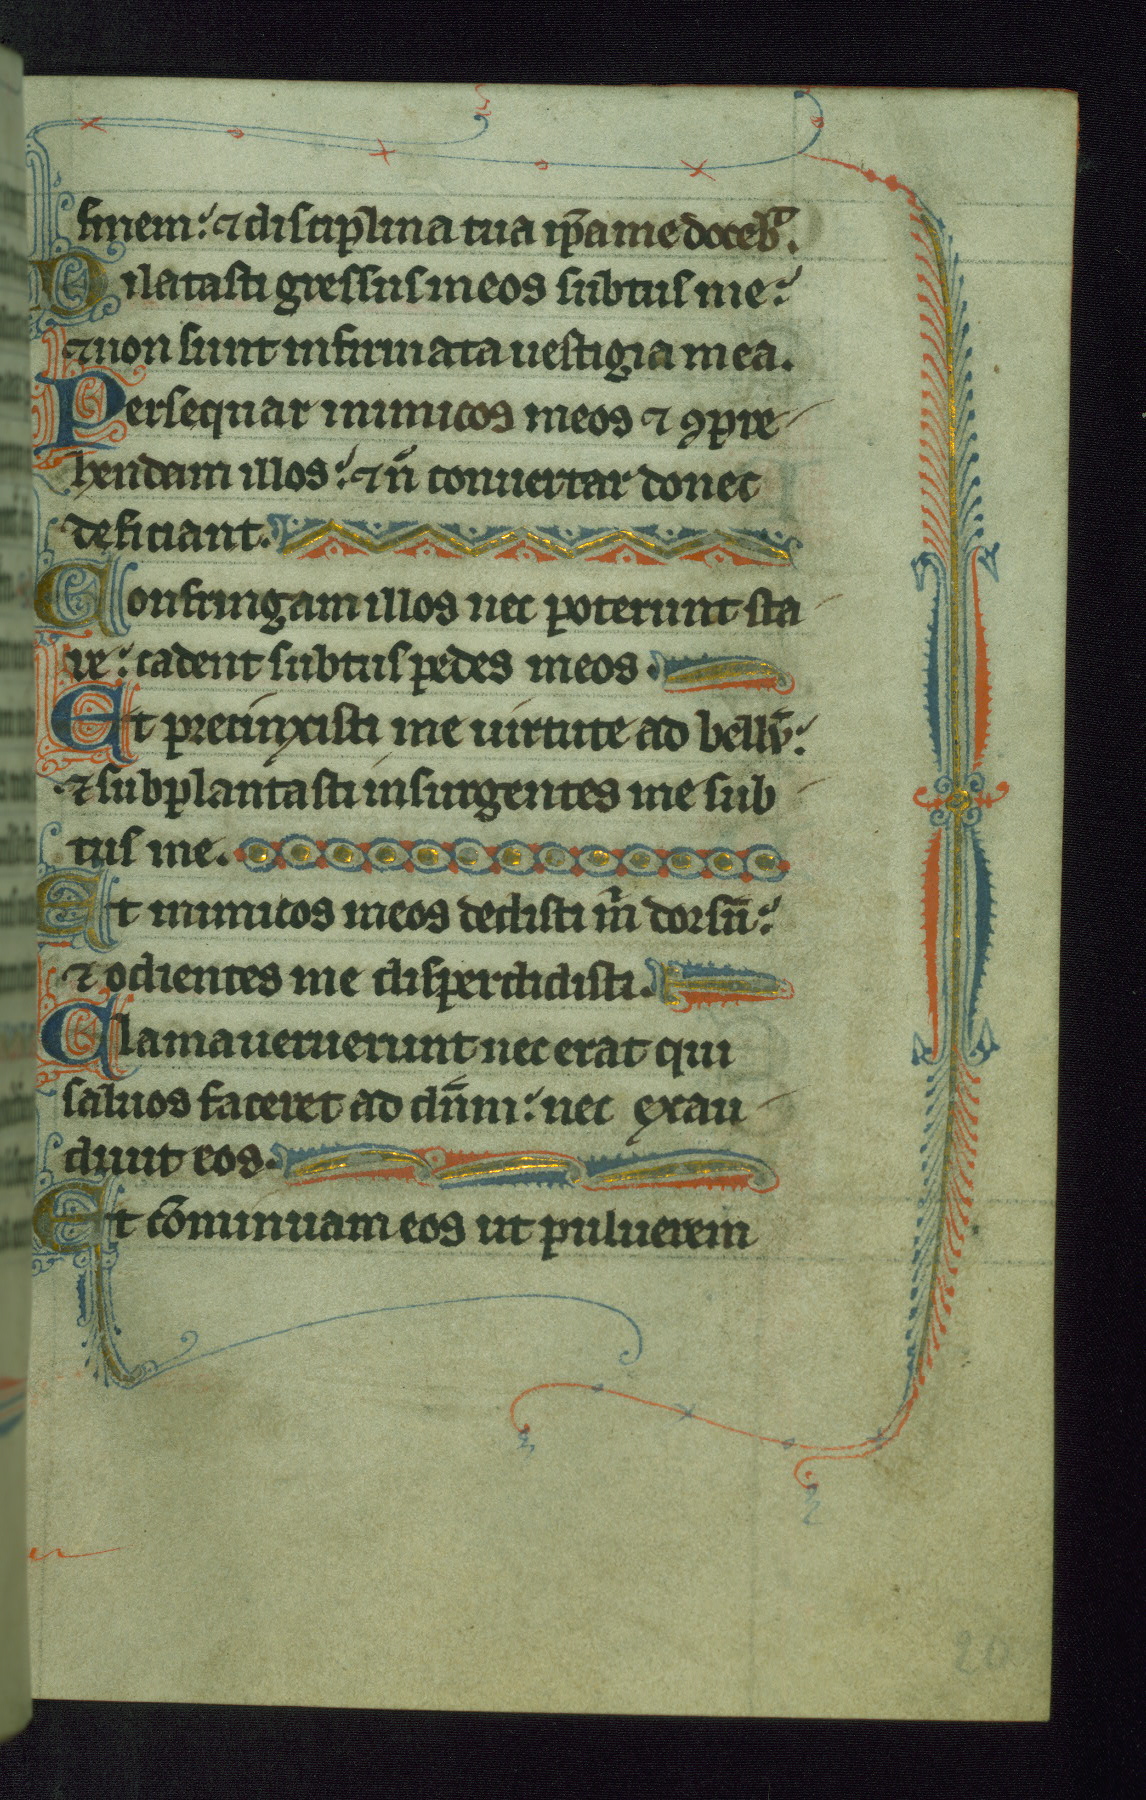 finem: ⁊ disciplina tua ip̄a me doceb̄.
Dilatasti gressus meos subtus me:
⁊ non sunt infirmata uestigia mea.
Persequar inimicos meos ⁊ ꝯpre
hendam illos: ⁊ n̄ conuertar donec
deficiant.
Confringam illos nec poterunt sta
re: cadent subtus pedes meos.
Et precinxisti me uirtute ad bellū:
⁊ subplantasti insurgentes me sub
tus me.
Et inimicos meos dedisti m̄ dorsū:
⁊ odientes me disperdidisti.
Clamaueruerunt nec erat qui
saluos faceret ad dn̄m: nec exau
diuit eos.
Et cōminuam eos ut puluerem
20